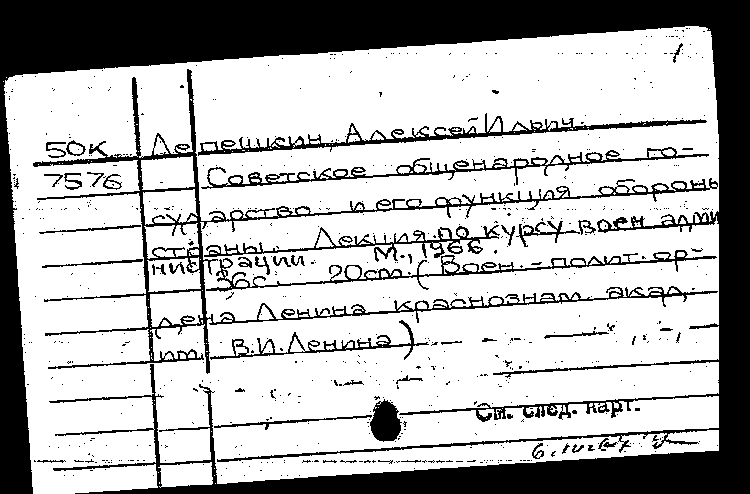 1
50К Лепешкин, Алексей Ильич.
7576 Советское общенародное го-
сударство и его функция обороны
страны. Лекция по курсу воен. адми
нистрации. М., 1966.
36с. 20см. (Воен.-полит. ор-
дена Ленина краснознам. акад.
им. В.И.Ленина)
См. след. карт.